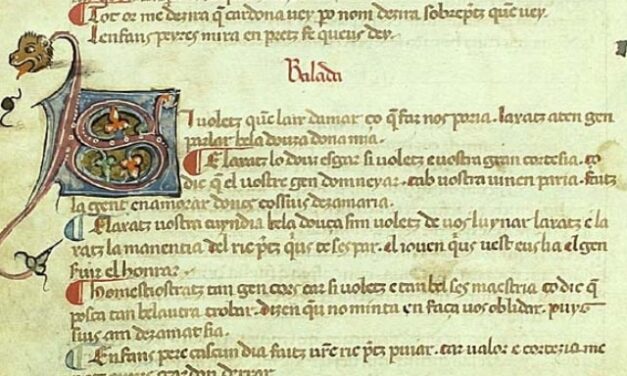 Tot or me dezira q̄ cardona vey . po nom dezira sobrep̄tz quē vey.
Lenfans peyres mira en pretz se queus dey.
Balada
Si voletz quē lair damar co q̄ far nos poria . laratz aten gen
parlar bela douza dona mia.
E laratz lo douz esgar si voletz e vostra gran cortesia . co
dic q̄ el vostre gen domneyar . cab vostra vinen paria . faitz
la gent enamorar
E laratz vostra cuyndia bela douça sim voletz de vos luynar laratz e la
ratz la manentia del ric p̄tz qus te ses par . el iouen q̄us vest eus ha el gen
fuir el honrar .
Hom estiers tratz tan gen cors car si voletz e tan bel ses maestria co dic q̄
posca tan bela vtra trobar . dizen qū no minta en faça vos oblidar . puys
sius am dezamat sia .
Enfans pere cascun dia faitz vrē ric p̄tz puiar . car valor e cortezia